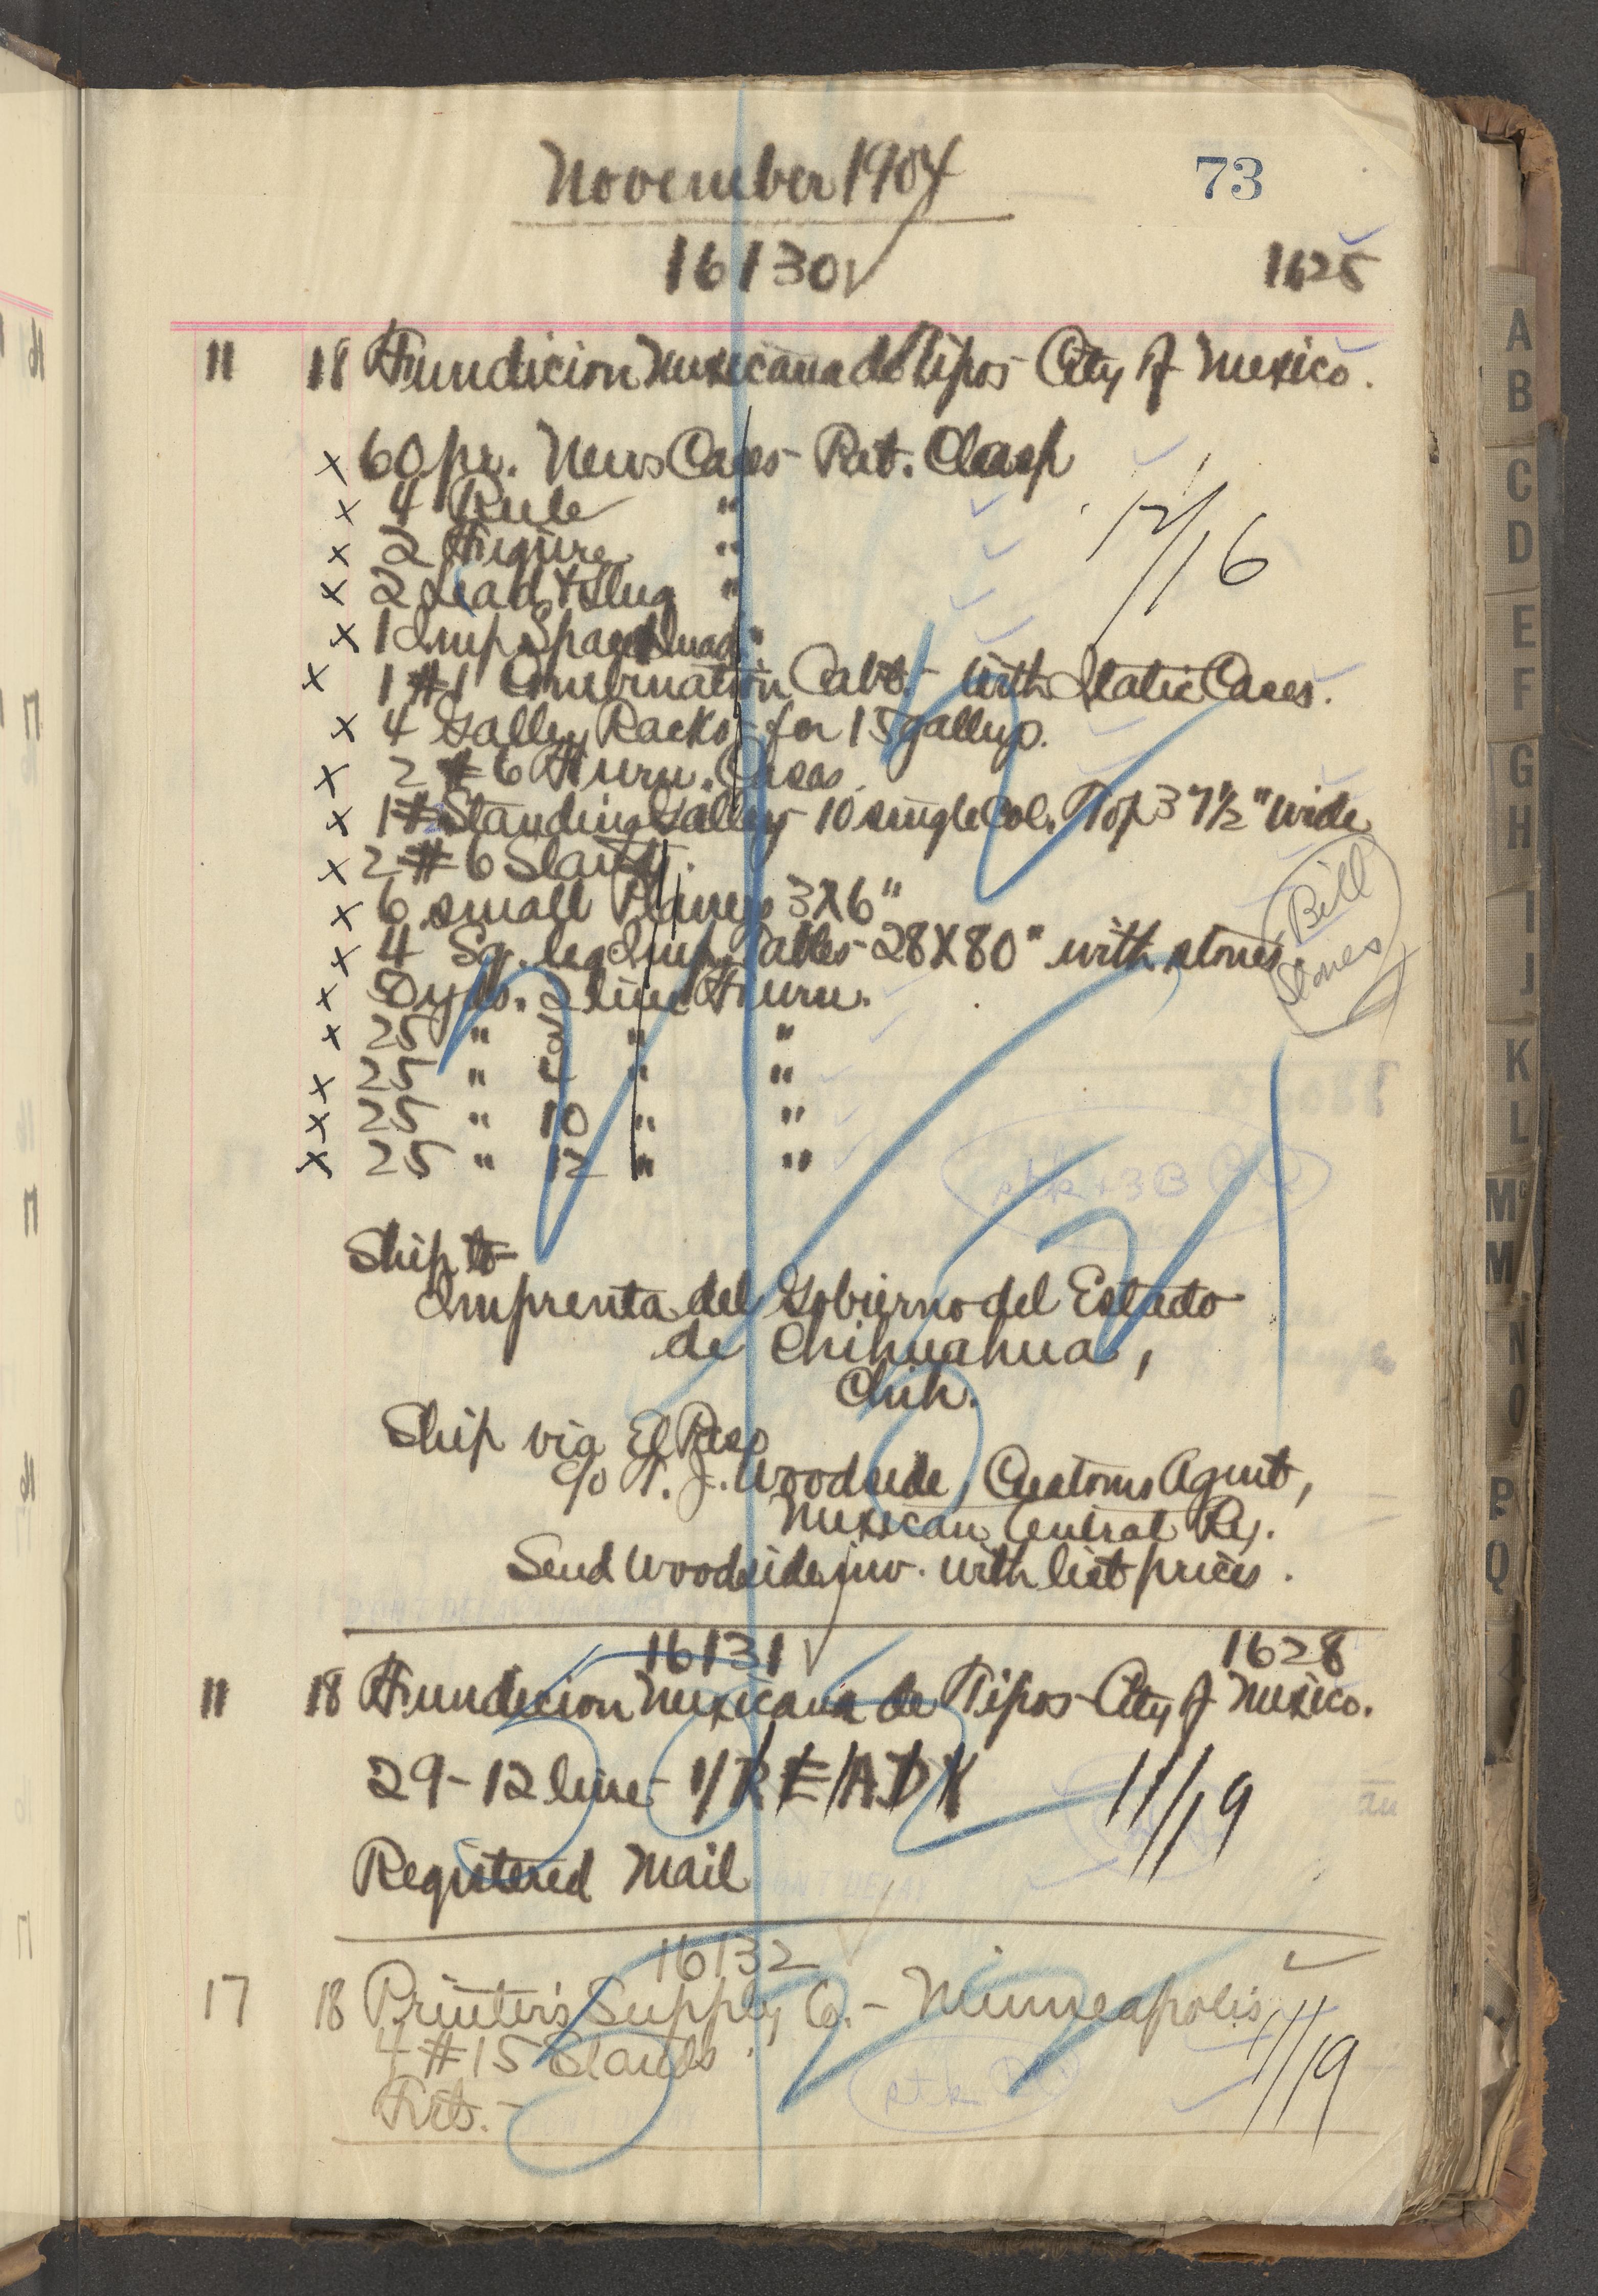 November 1904 73
16130 1625
11 18 Fundicion Mexicana de Tipos - City of Mexico.
x 60 pr. News Cases - Pat. Clasp
x 4 Rule "
x 2 Figure "
x 2 Lead & Slug "
x 1 Imp Space & Quad "
12/16
x 1 #1 Combination Cabt. - with Static Cases.
x 4 Galley Racks - for 15 galleys.
x 2 #6 Furn. Cases.
x 1 # Standing Galley - 10 single Col. Top 37½" wide
x 2 #6 Stands.
x 6 small Planers 3x6"
Bill Stones
x 4 Sq. leg Imp. Tables - 28x80" with stones.
x 50 yds. 2 line Furn.
x 25 " 3 " "
x 25 " 4 " "
x 25 " 10 " "
x 25 " 12 " "
Ship to
Imprenta del Gobierno del Estado
de Chihuahua,
Chih.
Ship via El Paso
c/o T. J. Woodside, Customs Agent,
Mexican Central Ry.
Send Woodside inv. with list prices.
16131 1628
11 18 Fundicion Mexicana de Tipos - City of Mexico.
29 - 12 line - 1/R E/A D X 11/19
Registered Mail
16132
17 18 Printer's Supply Co. - Minneapolis
4 #15 Stands 11/19
Frt. -
A
B
C
D
E
F
G
H
I
J
K
L
M
M
N
O
P
Q